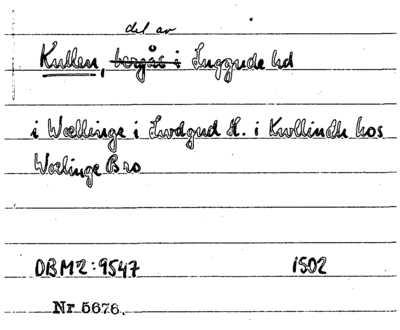 del av
Kullen, bergås i Luggude hd
i Wællinge i Lwdgud H. i Kwllindh hos
Wælinge Bro
DBM2:9547 1502
Nr 5676.